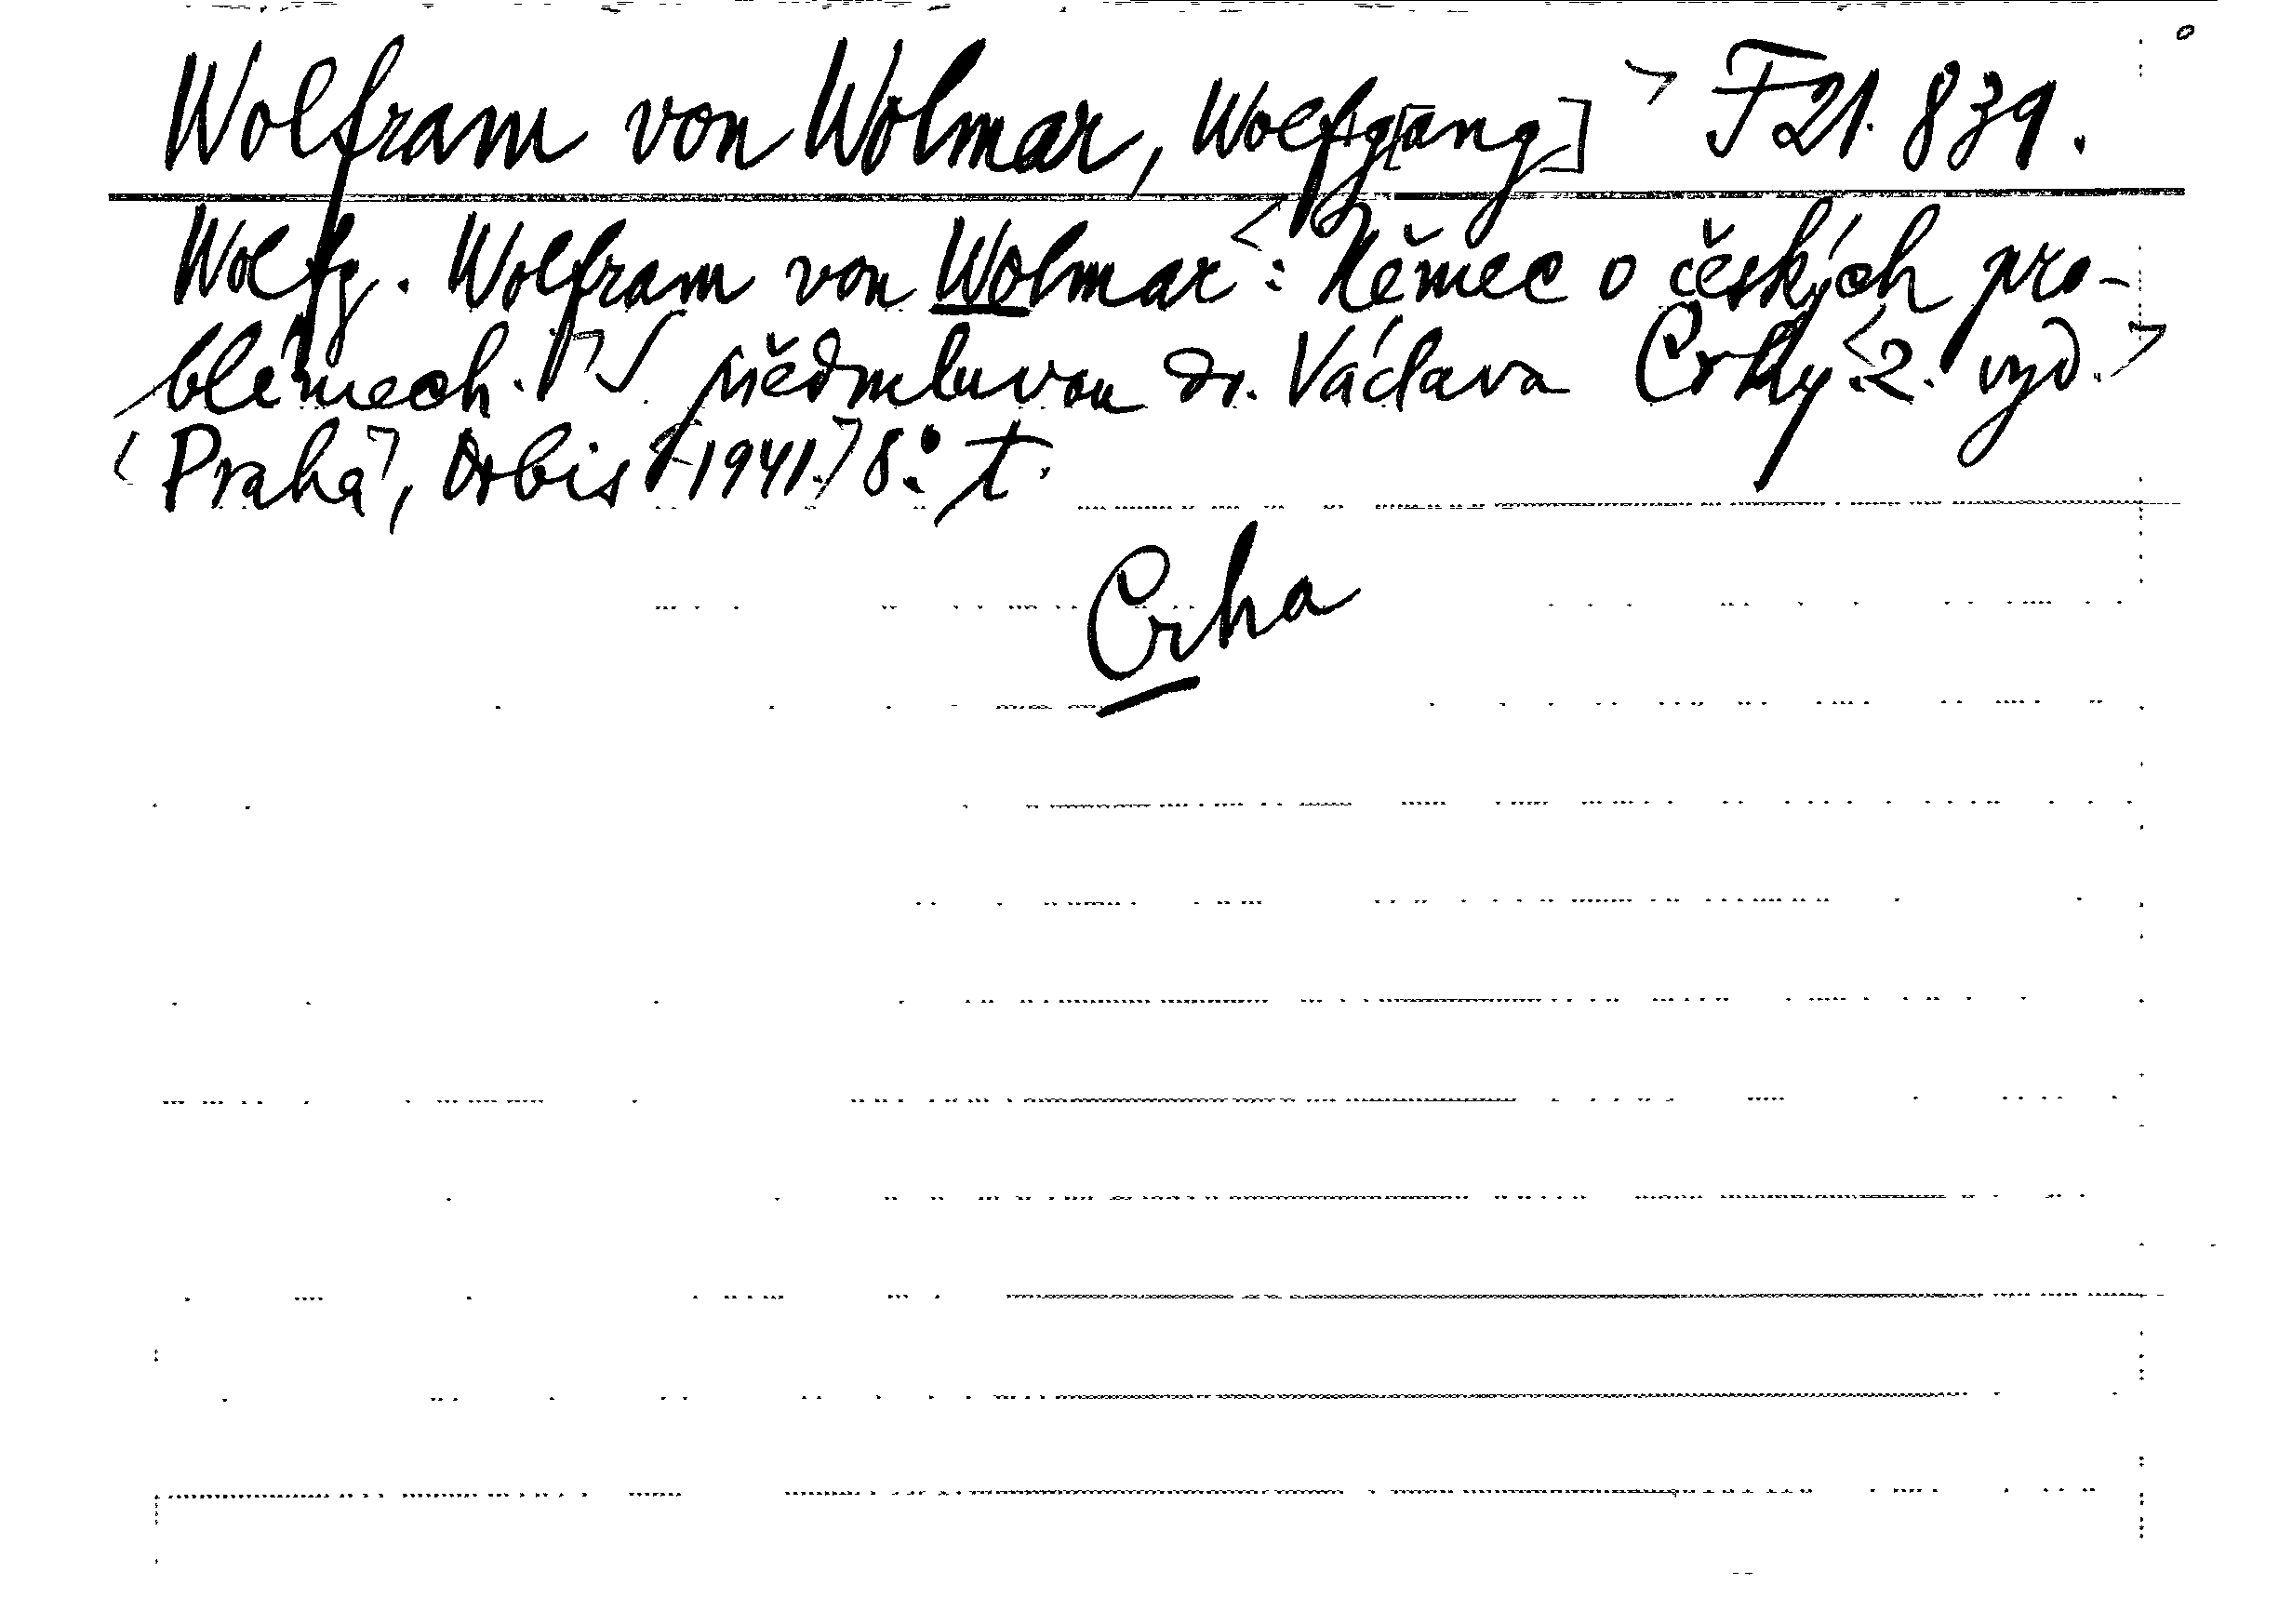 Wolfram von Wolmar, Wolfg[ang] F 21.839.
Wolfg. Wolfram von Wolmar: Němec o českých pro-
blémech. S předmluvou dr. Václava Crhy. 2. vyd.
Praha, Orbis 1941. 8° t.
Crha